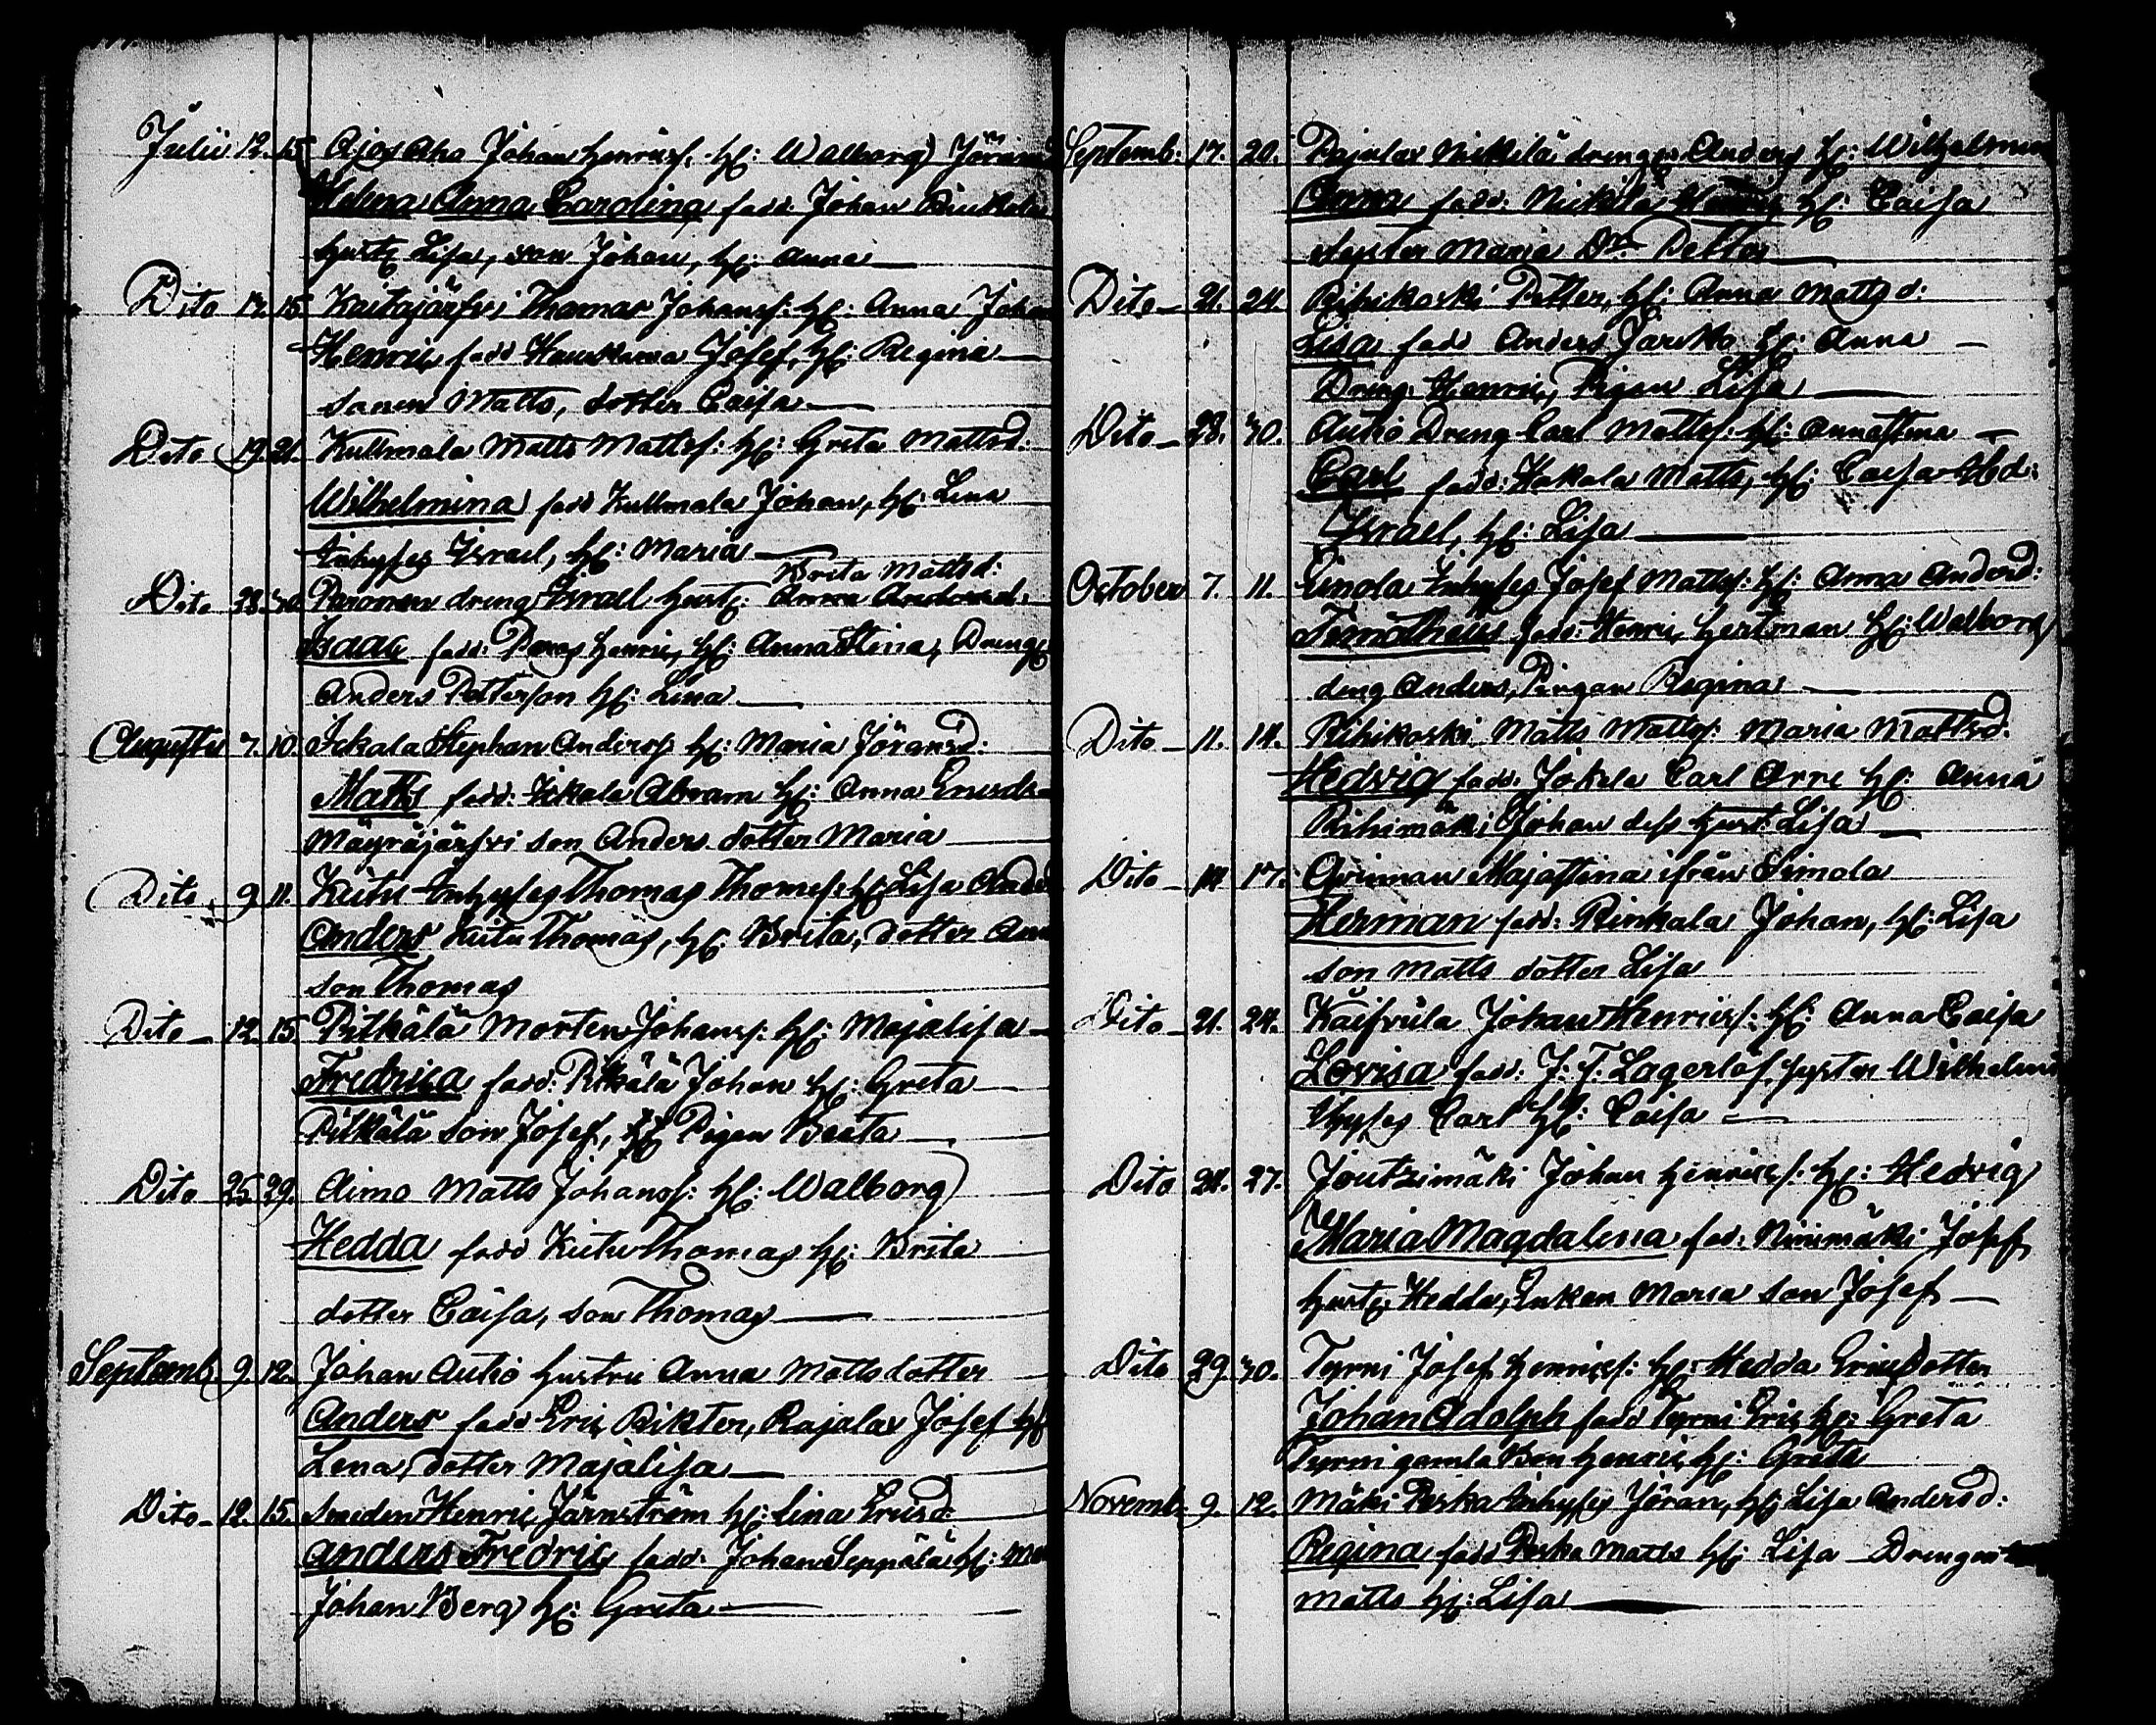 Julii 12. 15. Ajos Aho Johan Henrics: H: Walborg Jörans
Helena Anna Carolina fadd: Johan Rinkala
Hustr: Lisa, son Johan, H: Anna
Dito 12. 15. Kuitajärfvi Thomas Johans: H: Anna Johan
Henric fadd Josef, H: Regina
sonen Matts, dotter Caisa
Dito 19. 21. Kullmala Matts Matts: H: Greta Mattsd:
Wilhelmina fadd Kullmala Johan, H: Lena
Inhyses Israel, H: Maria
Brita Mattsd:
Dito 28. 30. Paronen dreng Israel Hustr: Anna Andersd:
Isaac fadd: Henric, H: Anna Stina, Dreng
Anders Petterson H: Lena
Augusti 7. 10. Iskala Stephan Anders H: Maria Jöransd:
Matts fadd: Iskala Abram H: Anna Ericsd
Mäyräjärfvi son Anders dotter Maria
Dito 9. 11. Kuitu Inhyses Thomas Thomes: H: Lisa Anders
Anders Kuitu Thomas, H: Brita, dotter Anna
son Thomas
Dito 12. 15. Pitkälä Morten Johans: H: Majalisa
Fredrica fadd: Pitkälä Johan H: Greta
Pitkälä son Josef, Pigan Beata
Dito 25. 29. Aimo Matts Johans: H: Walborg
Hedda fadd Kuitu Thomas H: Brita
dotter Caisa, son Thomas
Septemb. 9. 12. Johan Autio Hustru Anna Mattsdotter
Anders fadd Eric Rikter, Rajalax Josef H
Lena, dotter Majalisa
Dito 12. 15. Smeden Henric Järnström H: Lina Ericsd:
Anders Fredric fadd: Johan Seppälä H: Ma
Johan Berg H: Greta
Septemb: 17. 20. Rajalax Nikkilä drengen Anders H: Wilhelmina
Anna fadd: Nickilä H: Caisa
syster Maria Dr: Petter
Dito 21. 24. Rihikoski Petter, H: Anna Mattsd:
Lisa fadd Anders Jarkko H: Anna
Dreng: Henric, Pigan Lisa
Dito 28. 30. Autio Dreng Carl Matts: H: Annastina
Carl fadd: Kokala Matts, H: Caisa
Israel, H: Lisa
October 7. 11. Simola Inhyses Josef Matts: H: Anna Andersd:
Timotheus fadd: Henric Hertman H: Walborg
dreng Anders, Pigan Regina
Dito 11. 14. Rihikoski Matts Matts: Maria Mattsd.
Hedvig fadd: Jokela Carl Orre H: Anna
Rihimäki Johan dess hust: Lisa
Dito 14. 17. Qvinnan Majastina ifrån Simola
Herman fadd: Rinkala Johan, H: Lisa
son Matts dotter Lisa
Dito 21. 24. Kaifvila Johan Henrics: H: Anna Caisa
Lovisa fadd: J: F: Lagerlöf, syster Wilhelmi
Carl H: Caisa
Dito 24. 27. Joutzimäki Johan Henrics: H: Hedvig
Maria Magdalena fad: Ninimäki Josef
Hustr: Hedda, Enkan Maria son Josef
Dito 29. 30. Tyrni Josef Henrics: H: Hedda Ericsdotter
Johan Adolph fadd Tyrni Eric H: Greta
Tyrni gamla Henric, H: Greta
Novemb: 9. 12. Mäki Peska Inhyses Jöran, H: Lisa Andersd:
Regina fadd Peska Matts H: Lisa Drengen
Matts H: Lisa